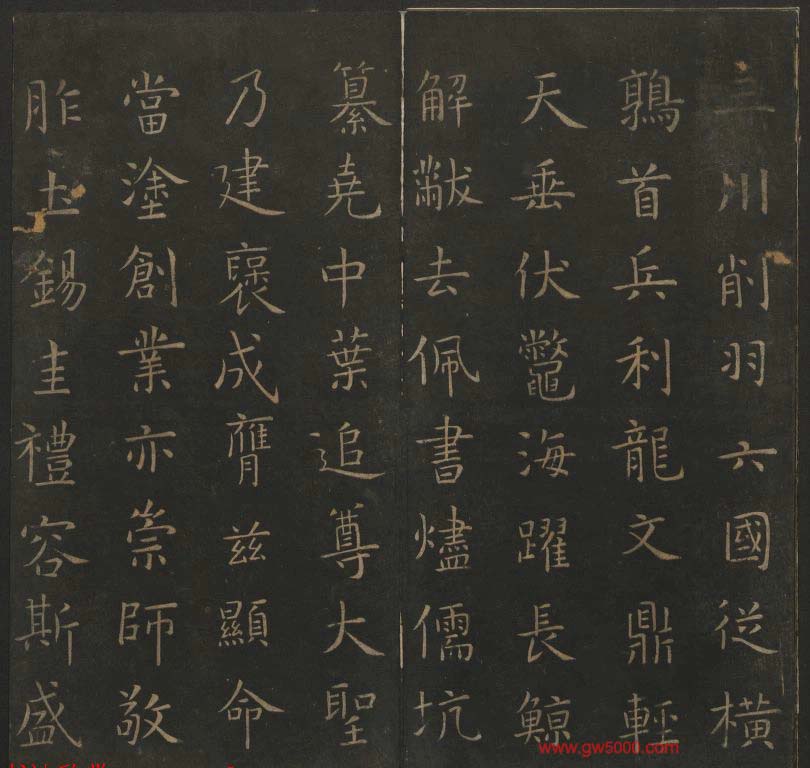 三川削羽六國從橫
鶉首兵利龍文鼎輕
天垂伏鼈海躍長鯨
解黻去佩書燼儒坑
纂堯中葉追尊大聖
乃建襃成膺茲顯命
當塗創業亦崇師敬
胙土錫圭禮容斯盛
www.gw5000.com